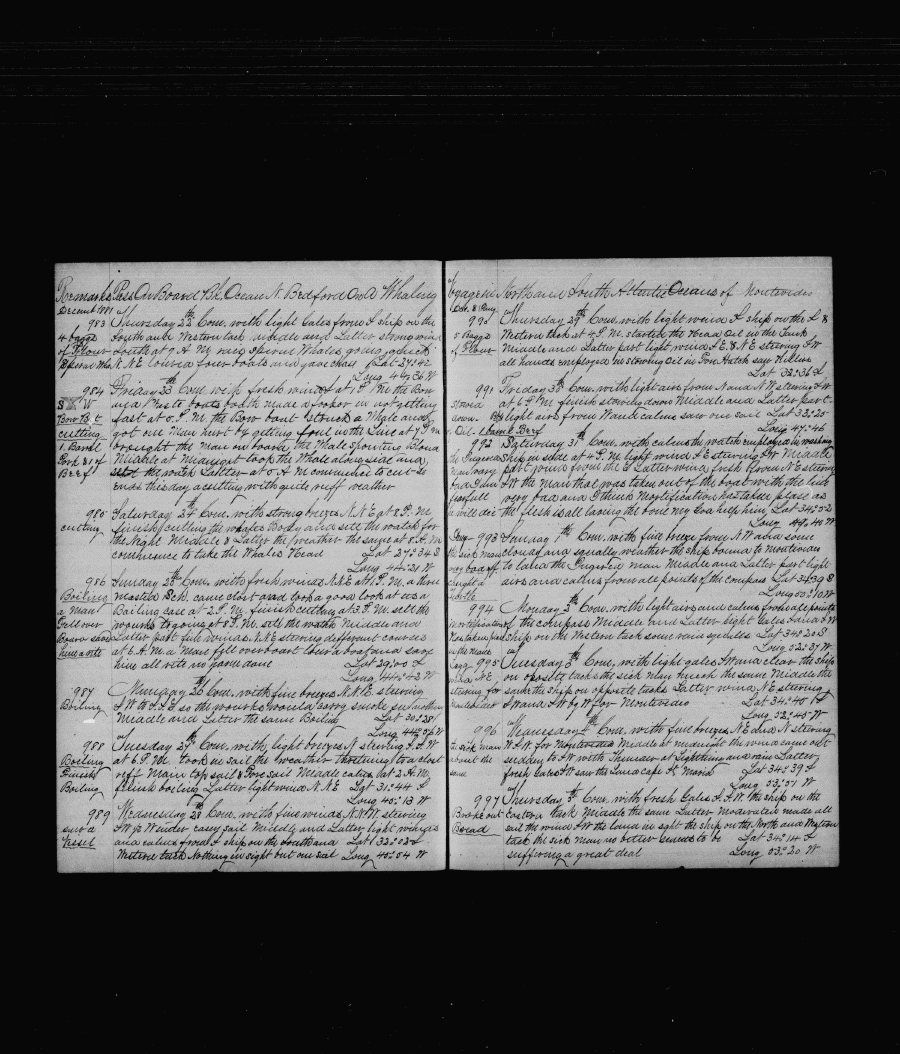 Remarks Pass On Board Bk Ocean N. Bedford On A Whaling
December 1881
983 Thursday 22th Com, with light Gales from S ship on the
4 baggs South and Western tack Middle and Latter strong wind
of Flour South at 9 A M rais Sperm Whales going quick
Sperm Wha N.N.E lowered four boats and gave chase Lat 27=42
Long 44=36 W
984 Friday 23th Com with fresh winds at 1 P M the Bow
S W and Waste boats both made a in not getting
Bow B. t fast at 5 P. M. the Bow boat struck a Whale and
cutting got one Man hurt by getting foul in the Line at 7 P M
1. Barel brought the man on board the Whale Spouting Blood
Pork & 1 of Middle at Midnight took the Whale along side and
Beef set the watch Latter at 5 A M commenced to cut so
ends this day a cutting with quite ruff weather
985 Saturday 24th Com, with strong breezes N.N.E at 8 P. M.
cutting finish cutting the whales Body and set the watch for
the Night Middle & Latter the weather the same at 5 A. M.
commence to take the Whales Head Lat 27=34 S
Long 44=21 W
986 Sunday 25th Com, with fresh winds N.N.E at 1 P. M. a three
Boiling masted Sch. came close and took a good look at us a
a Man Boiling case at 2 P. M. finish cutting at 3 P. M. set the
Fell over wourks to going at 8 P. M. set the watch Middle and
Board shove Latter part fine winds. N.N.E stering different courses
hime a rite at E. A. M. a Man fell over boart lower a boat and save
hime all rite no farme done Lat 29=00 S
Long 44=42 W
987 Munday 26th Com, with fine breezes N.N.E. stering
Boiling S W to S.S.E so the wourks would carry smoke in
Middle and Latter the same Boiling Lat 30=28
Long 44=56 W
988 Tuesday 27th Com, with light breezes N stering S.S.W
Boiling at 6 P. M. took in sail the weather thretning to a close
Finish reff Main top sail & Fore sail Middle calm, at 2 A. M.
Boiling finish boiling Latter light wind N.N.E Lat 31=44 S
Long 45=13 W
989 Wednesday 28th Com, with fine winds N.N.W. stering
saw a S W by W under easy sail Middle and Latter light winds
Vessel and calms from S ship on the South and Lat 32=02 S
Western tack Nothing in sight but one sail Long 45=54 W
Voyage in North and South Atlantic Oceans of Montevideo
990 Thursday 29th Com, with light wind S ship on the S &
5 Baggs Western tack at 4 P. M. started the Head Oil in the Tank
of Flour Middle and Latter part light, wind S.E. & N.E stering S W
all hands employed in stowing Oil in Fore Hatch saw Killers
Lat 32=36 S
991 Friday 30th Com, with light airs from N and N.W stering S W
stowed at 6 P. M. finish stowing down Middle and Latter part
down light airs from W and calms saw one sail Lat 33=25
Oil - 1 Barrel Beef Long 47=46
992 Saturday 31th Com, with calms the watch employed in washing
the Ingered Ship in side at 4 P. M. light wind S E stering S W Middle
Man vary part wind from the S Latter wind fresh from N E stering
bad I am S W the Man that was taken out of the boat with the line
fearfull very bad and I think Mortification has taken place as
he will die the flesh is all leaving the bone my God help him, Lat 34=52
Long 48=40 W
993 Sunday 1th Com, with fine breeze from N.W and some
the sick man cloudy and squally weather the ship bound to Montevideo
vary bad off to land the Ingered man Middle and Latter part light
caught a airs and calms from all points of the compass Lat 34=39 S
Turtle Long 50=10 W
994 Monday 2th Com, with light airs and calms from all points
Mortification of the compass Middle and Latter light Gales S and S W
Has taken place Ship on the Western tack some rain squalls Lat 34=20 S
in the man's Long 52=37 W
Legg 995 Tuesday 3th Com, with light gales S W and clear the ship
wind N E, on oposite tacks the sick man much the same Middle the
stering for same the ship on opposite tacks Latter wind N E stering
Montevideo W and S W by W for Montevideo Lat 34=40 S
Long 52=45 W
996 Wednesday 4th Com, with fine breezes N.E and N stering
the sick man W.S.W. for Montevideo Middle at midnight the wind came out
about the sudden to S W with Thunder and Lightning and rain Latter
same fresh Gales S W saw the Land Cape St Maria Lat 34=39 S
Long 53=51 W
997 Thursday 5th Com, with fresh Gales S. S.W. the ship on the
Broke out Eastern tack Middle the same Latter Moderated made all
Bread sail the wind S W the land in sight the ship on the North and Western
tack the sick man no better seems to be Lat 34=14 S
suffering a great deal Long 53=20 W